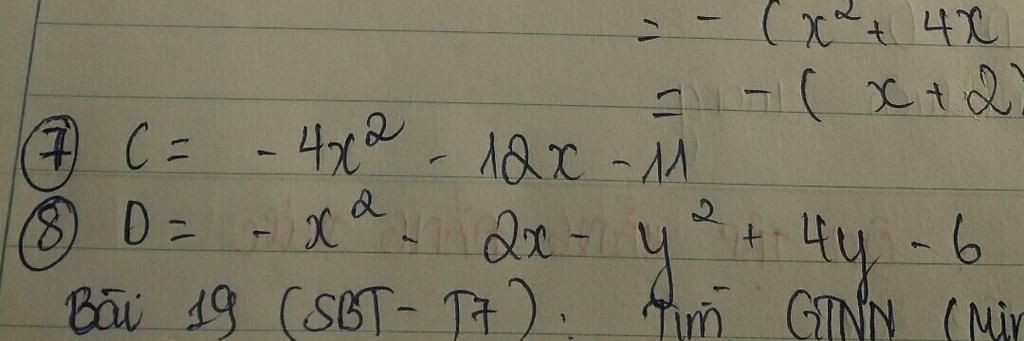 = - (x² + 4x
= - ( x + 2)
⑦ C = - 4x² - 12x - 11
⑧ D = - x² - 2x - y² + 4y - 6
Bài 19 (SBT - T7). Tìm GTNN (Min